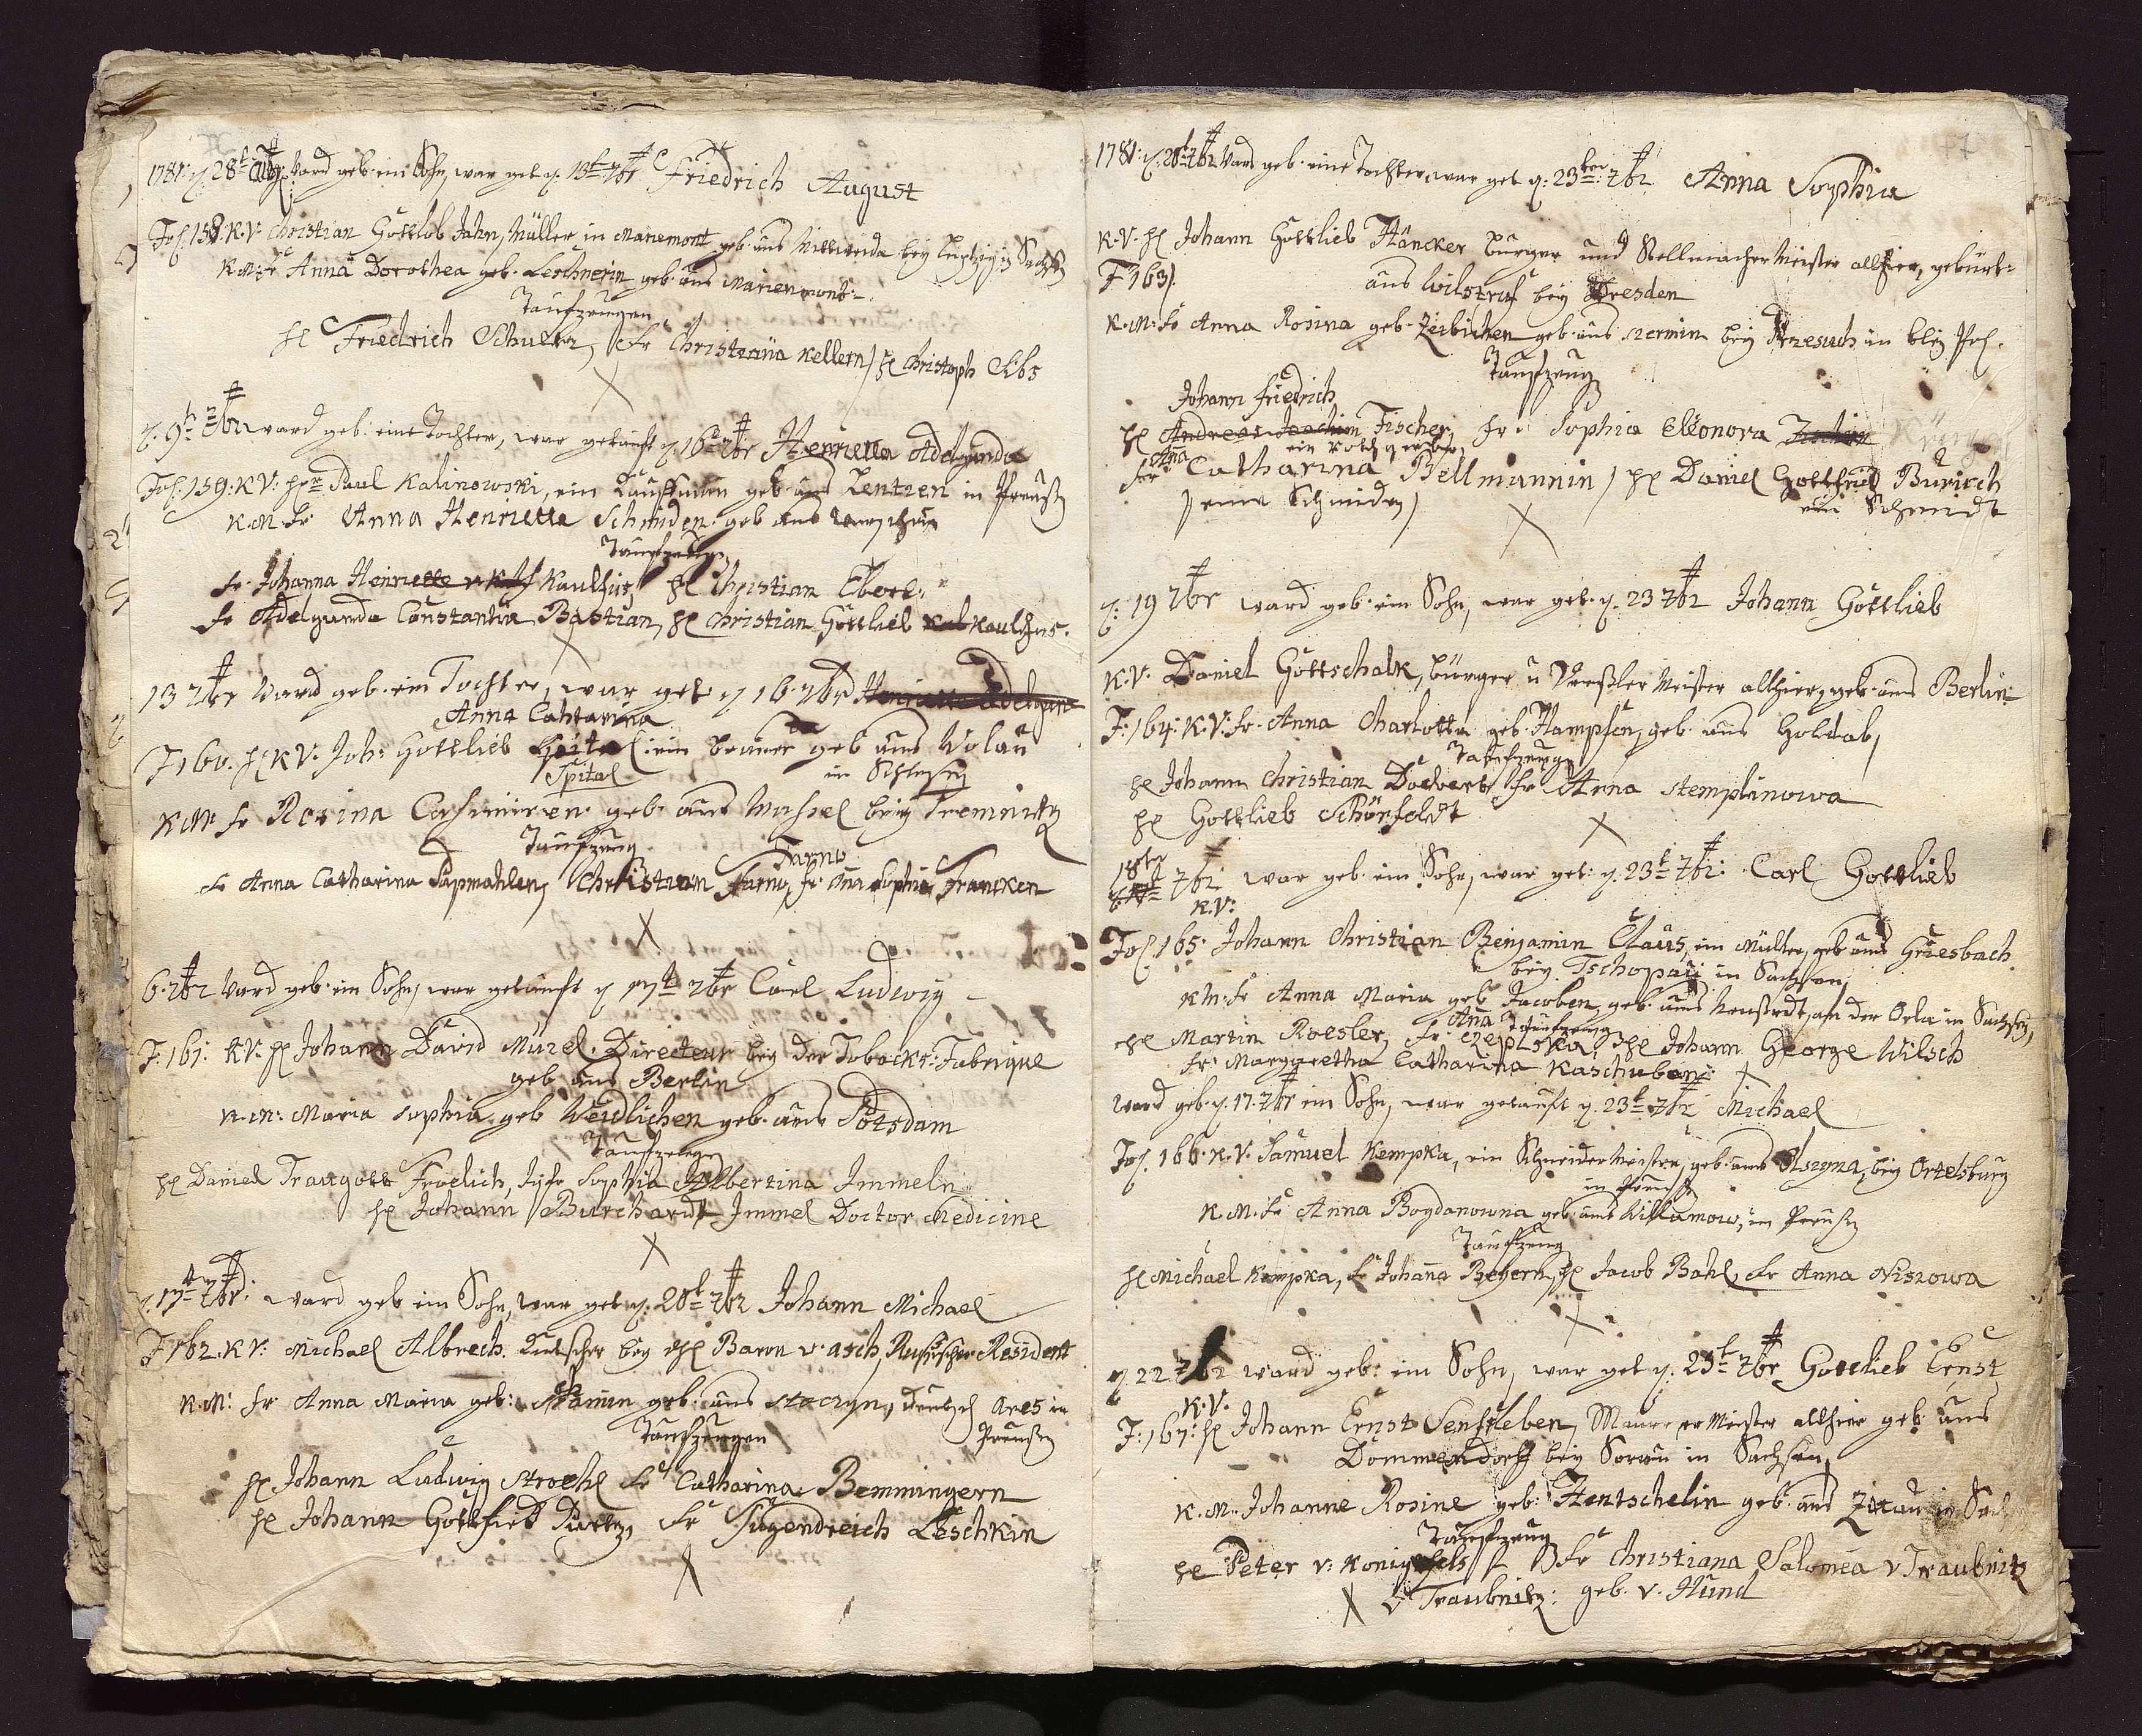 1781. d. 28t Aug: Ward geb. ein Sohn, war get d. 13t 7br Friedrich August
Fol. 158. K.V. Christian Gottlob Jahn, Müller in Mariemont geb. aus Mittweida bey Leipzig in Sachsen
K.M. Fr Anna Dorothea geb. Leschnerin geb. aus Marienmont
Taufzeugen
H Friedrich Schultz, Fr Christiana Kellern, H Christoph
d. 9t 7br ward geb. eine Tochter, war getauft d. 16t 7br Henrietta Adelgunda
Fol. 159: K.V: Herr Paul Kalinowski, ein Kauffmann geb. aus Lentzen in Preußen
K.M. Fr Anna Henrietta Schmiden geb aus Warschau
Taufzeugen
Fr. Johanna Henriette v Kaulfus, H Christian Ebert
Fr Adelgunda Constantia Bastian, H Christian Gottlieb Kaulfus.
13 7br Ward geb. ein Tochter, war get d 16. 7br Henrietta Adelgun
Anna Cahtarina
F 160. H K.V. Joh: Gottlieb ein geb aus Wolau
Spital in Schlesien
K.M. Fr Rosina Casimiren geb. aus Massel bey Tremnitz
Taufzeug
Tarno
Fr Anna Catharina Sapmahlen, Christian Tarno, Fr. Ana Sophia Francken
6. 7br Ward geb. ein Sohn, war getauft d 17t 7br Carl Ludwig
F: 161: K.V: H Johann David Mürel. Directeur bey der Tobacks: Fabrique
geb aus Berlin
K.M: Maria Sophia geb Weidlichen geb. aus Potsdam
Taufzeugen
H Daniel Traugott Froelich, Jgfr Sophia Albertina Immeln
H Johann Burchardt Immel Doctor Medicine
d. 17t 7br: ward geb ein Sohn, war get d. 20t 7br Johann Michael
F 162. K V: Michael Albrech. Kutscher bey H Baron v. Asch, Rußischer Resident
K.M: Fr Anna Maria geb: geb. aus Stoczyn, deutsch Ares in
Taufzeugen Preußen
H Johann Ludwig Stroehl Fr Catharina Bemmingern
H Johann Gottfried Fr Tugendreich Leschkin
17
1781. d. 20t 7br Ward geb. eine Tochter, war get d: 23ten 7br Anna Sophia
K.V. H Johann Gottlieb Häncker Bürger und Stellmacher Meister allhier, gebürt:
F 163. aus Wilstruf bey Dresden
K.M: Fr Anna Rosina geb. Zeibichen geb. aus Nermin bey in
Taufzeug
Johann Friedrich
H Andreas Joachim Fischer, Fr: Sophia Eleonora Krüge
ein Rothgerber
Fr Ana Catharina Bellmannin, H Daniel Gottfried Burisch
eine Schmiden, ein Schmidt
d. 19 7br ward geb. ein Sohn, war get. d. 23 7br Johann Gottlieb
K.V. Daniel Gottschalk, bürger u Dreßler Meister allhier, geb. aus Berlin
F: 164: K.V: Fr. Anna Charlotta geb. Hampsen, geb. aus Goldab,
Taufzeug
H Johann Christian Fr Anna Stemplanowa
H Gottlieb Schönfeldt
18ten 7br war geb. ein Sohn, war get: d. 23t 7br: Carl Gottlieb
K.V:
Fol. 165: Johann Christian Benjamin Claus, ein Müller, geb. aus Griesbach
bey Tschopau in Sachsen,
K.M. Fr Anna Maria geb Jacoben, geb. aus Neustadt, an der Orla in Sachsen,
Taufzeug
H Martin Roesler, Fr Ana Rzepiska, H Johann George Wilsch
Fr. Margaretha Catharina Kaschuben
ward geb. d. 17. 7br ein Sohn, war getauft d. 23t 7br Michael
Fol. 166. K.V. Samuel Kempka, ein Schneider Meister, geb. aus Olszyna, bey Ortelsburg
in Preussen
K.M. Fr Anna Bogdanowna geb. aus Willamow, in Preußen
Taufzeug
H Michael Kempka, Fr Johana Beyern, H Jacob Bahl, Fr Anna Niszowa
d 22 7br ward geb: ein Sohn, war get d. 23t 7br Gottlieb Ernst
K.V.
F: 167: H Johann Ernst Senftleben, Maurer Meister allhier geb. aus
Dommendorff bey Sorau in Sachsen,
K.M. Johanne Rosine geb: Hentschelin geb. aus Zittau in Sac
Taufzeug
H Peter v: Konigsfels Fr Christiana Salomea v Traubnitz
v Traubnitz: geb. v. Hund